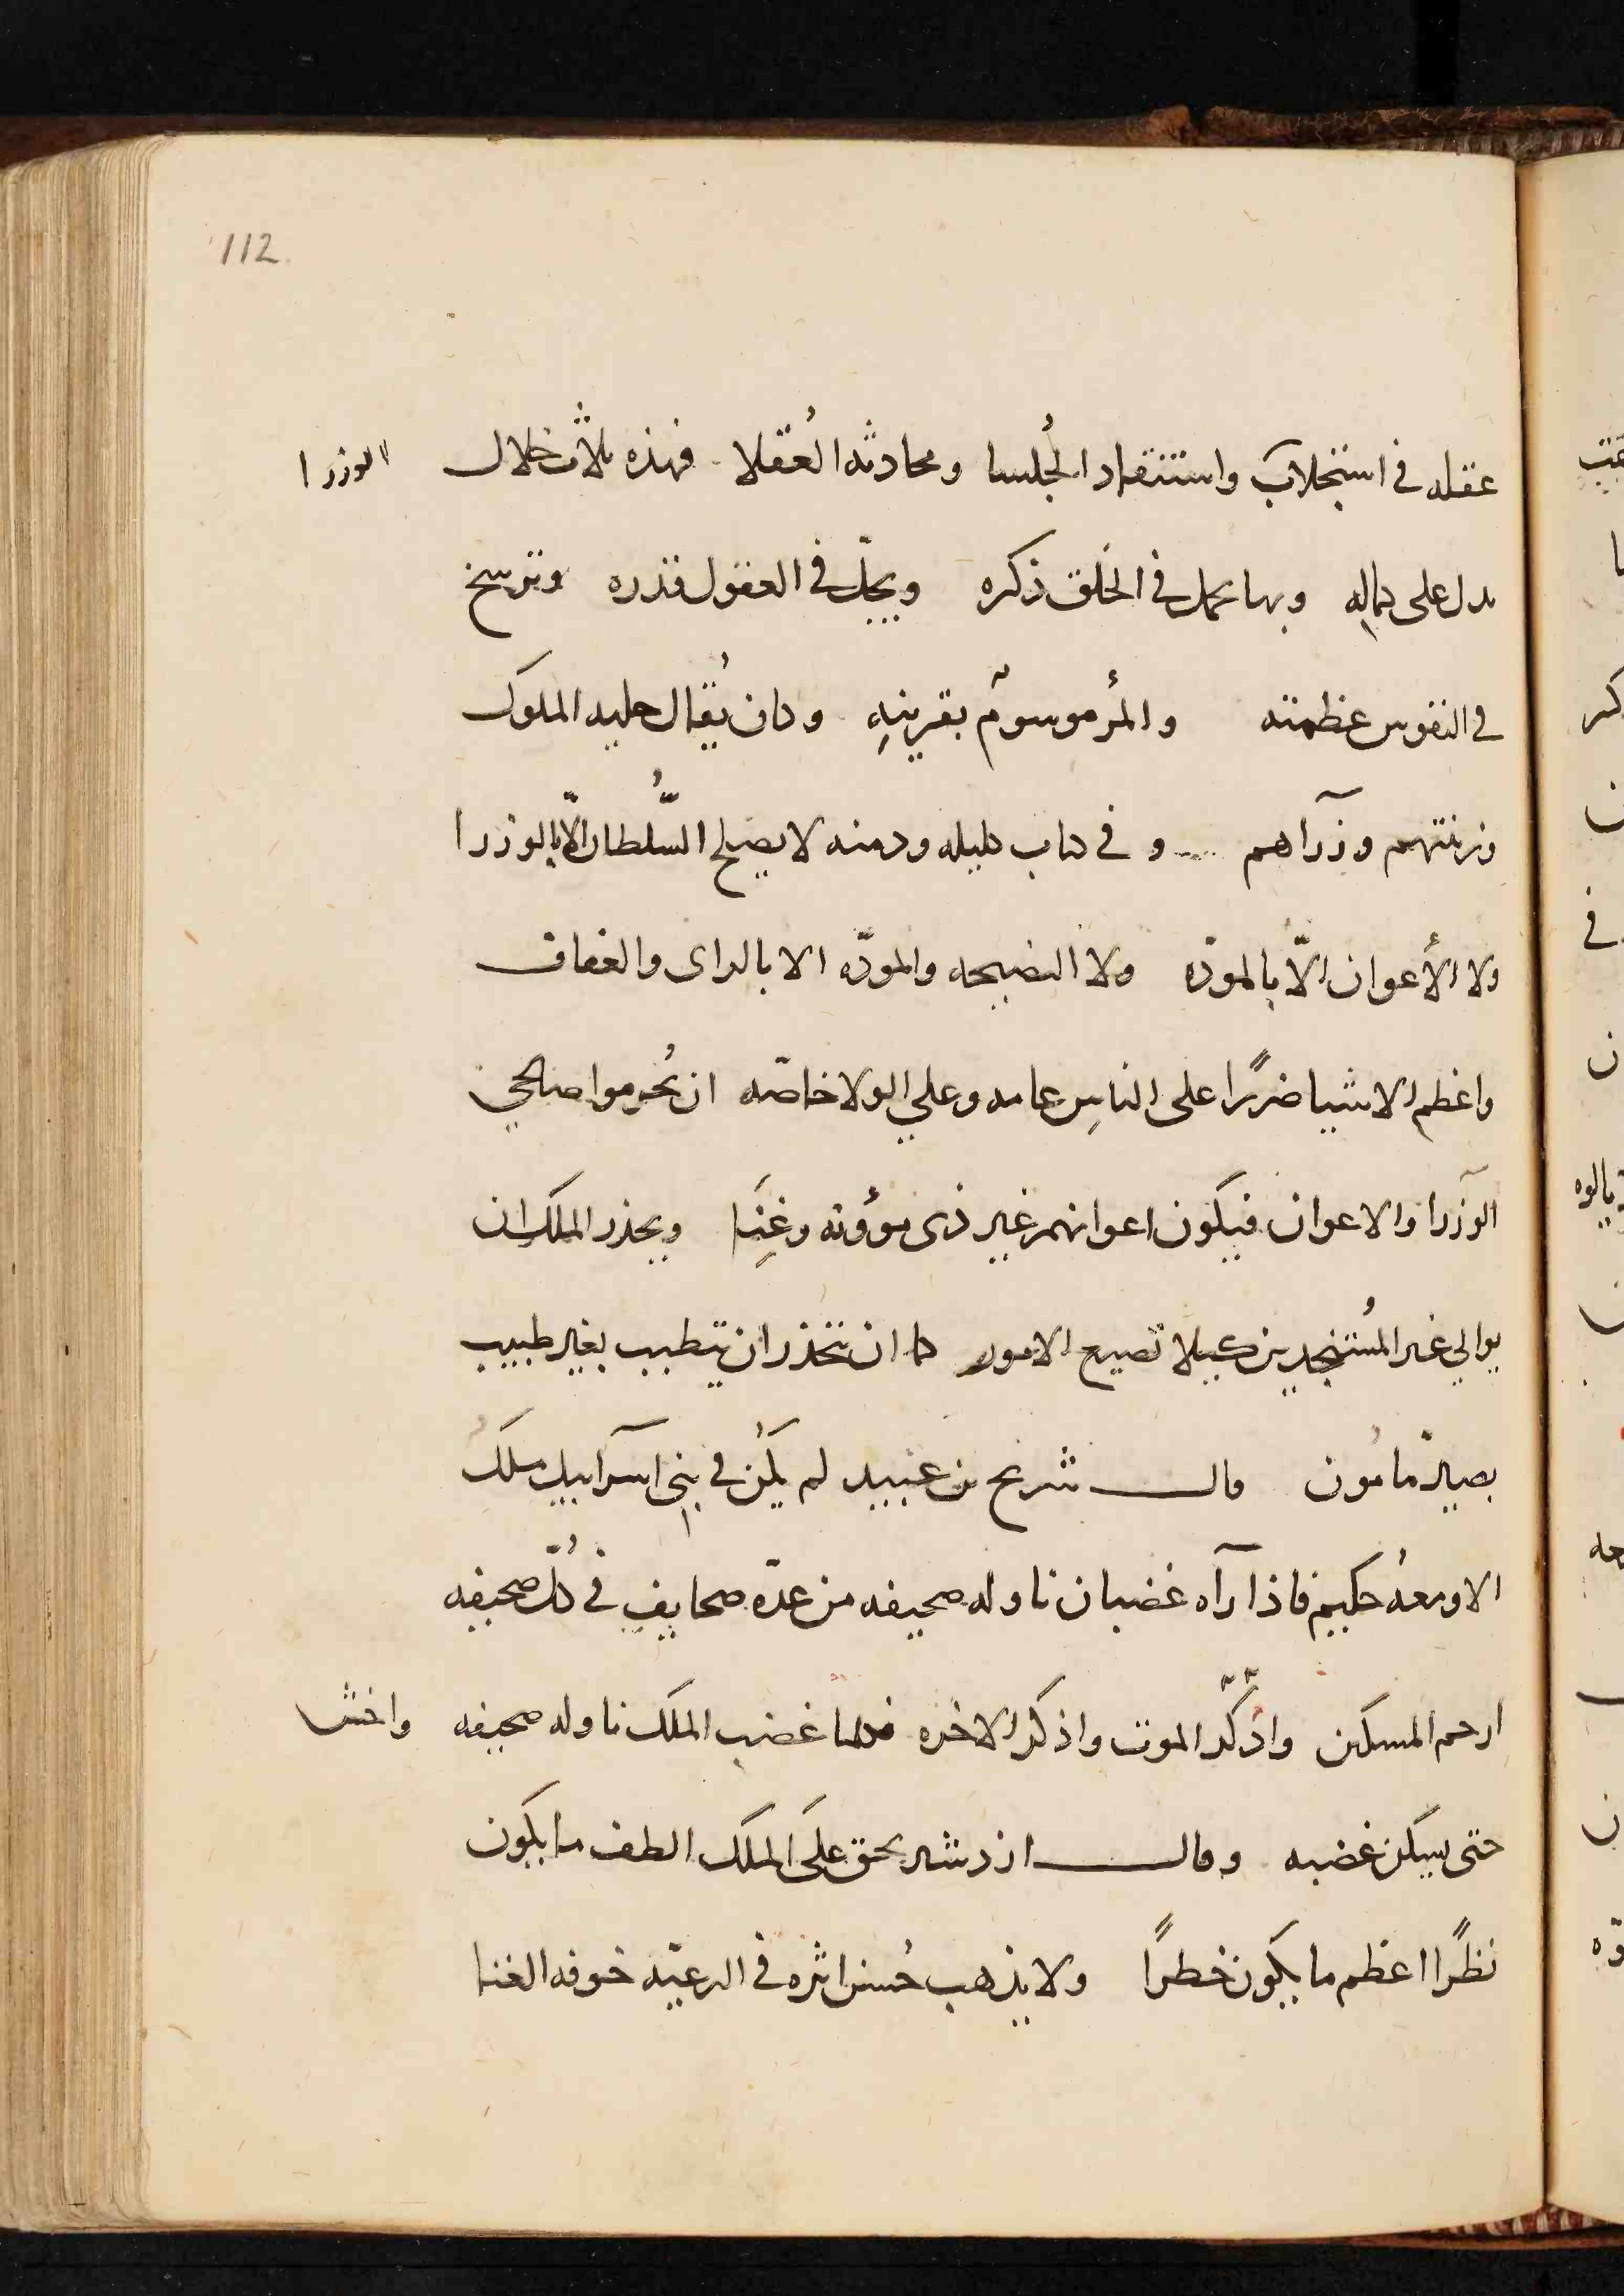 112
عقله في استخلاب واستنقاد الجُلسا ومحادثه العُقلا فهذه ثلاث خلال الوزرا
تدل على كماله وبها يجمل في الخلق ذكره ويجلّ في العقول قدره وترسخ
في النفوس عظمته والمرُء موسومٌ بقرينهِ وكان يُقال حليه الملوك
وزينتهم وزرآاهم وفي كتاب كليله ودمنه لا يصلح السُّلطان الّا بالوزرا
ولا الأعوان الّا بالمودّه ولا النصيحه والمودّه الا بالراى والعفاف
واعظم الاشيا ضررًا على الناسِ عامه وعلي الولاه خاصّه ان يُحرموا صالحي
الوزرا والاعوان فيكون اعوانهم غير ذى مروُته وغِنَا ويحذر الملك ان
يوالي غير المُستنجدين كيلا تضيع الامور كما ان يتحذر ان يتطبب بغير طبيب
بصير مامون قال شريح بن عبيد لم يكُن في بني اسرآييل ملك
الا ومعهُ حكيم فاذا رآه غضبان ناوله صحيفه من عدّه صحايف في كُلّ صحيفه
ارحم المسكين واذكر الموت واذكر الاخره فكلما غضب الملك ناوله صحيفه واخش
حتى يسكن غضبه وقال ازدشير بحق علَى الملك الطف ما يكون
نظرًا اعظم ما يكون خطرًا ولا يذهب حُسن اثره في الرعيّه خوفه الغنا